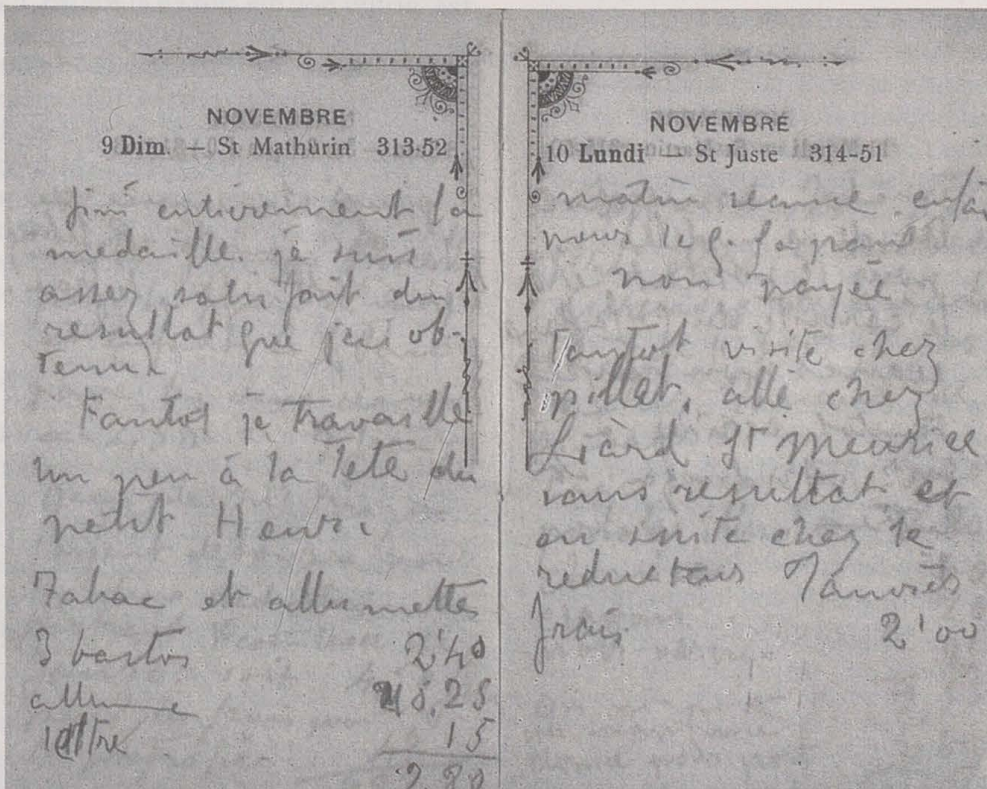 NOVEMBRE
9 Dim. — St Mathurin 313-52
fini entierement la
medaille. je suis
assez satisfait du
resultat que jai ob-
tenu.
Tantot je travaille
un peu à la tete du
petit Henri
Tabac et allumettes
3 bastos 2'40
allume 0,25
lettre 15
2 80
NOVEMBRE
10 Lundi — St Juste 314-51
matin seance
pour le
non payée
Tantot visite chez
pillet, allé chez
Liard St Meurice
sans resultat et
en suite chez le
reducteur
frais 2'00